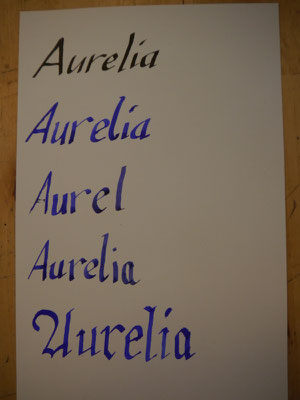 Aurelia
Aurelia
Aurel
Aurelia
Aurelia